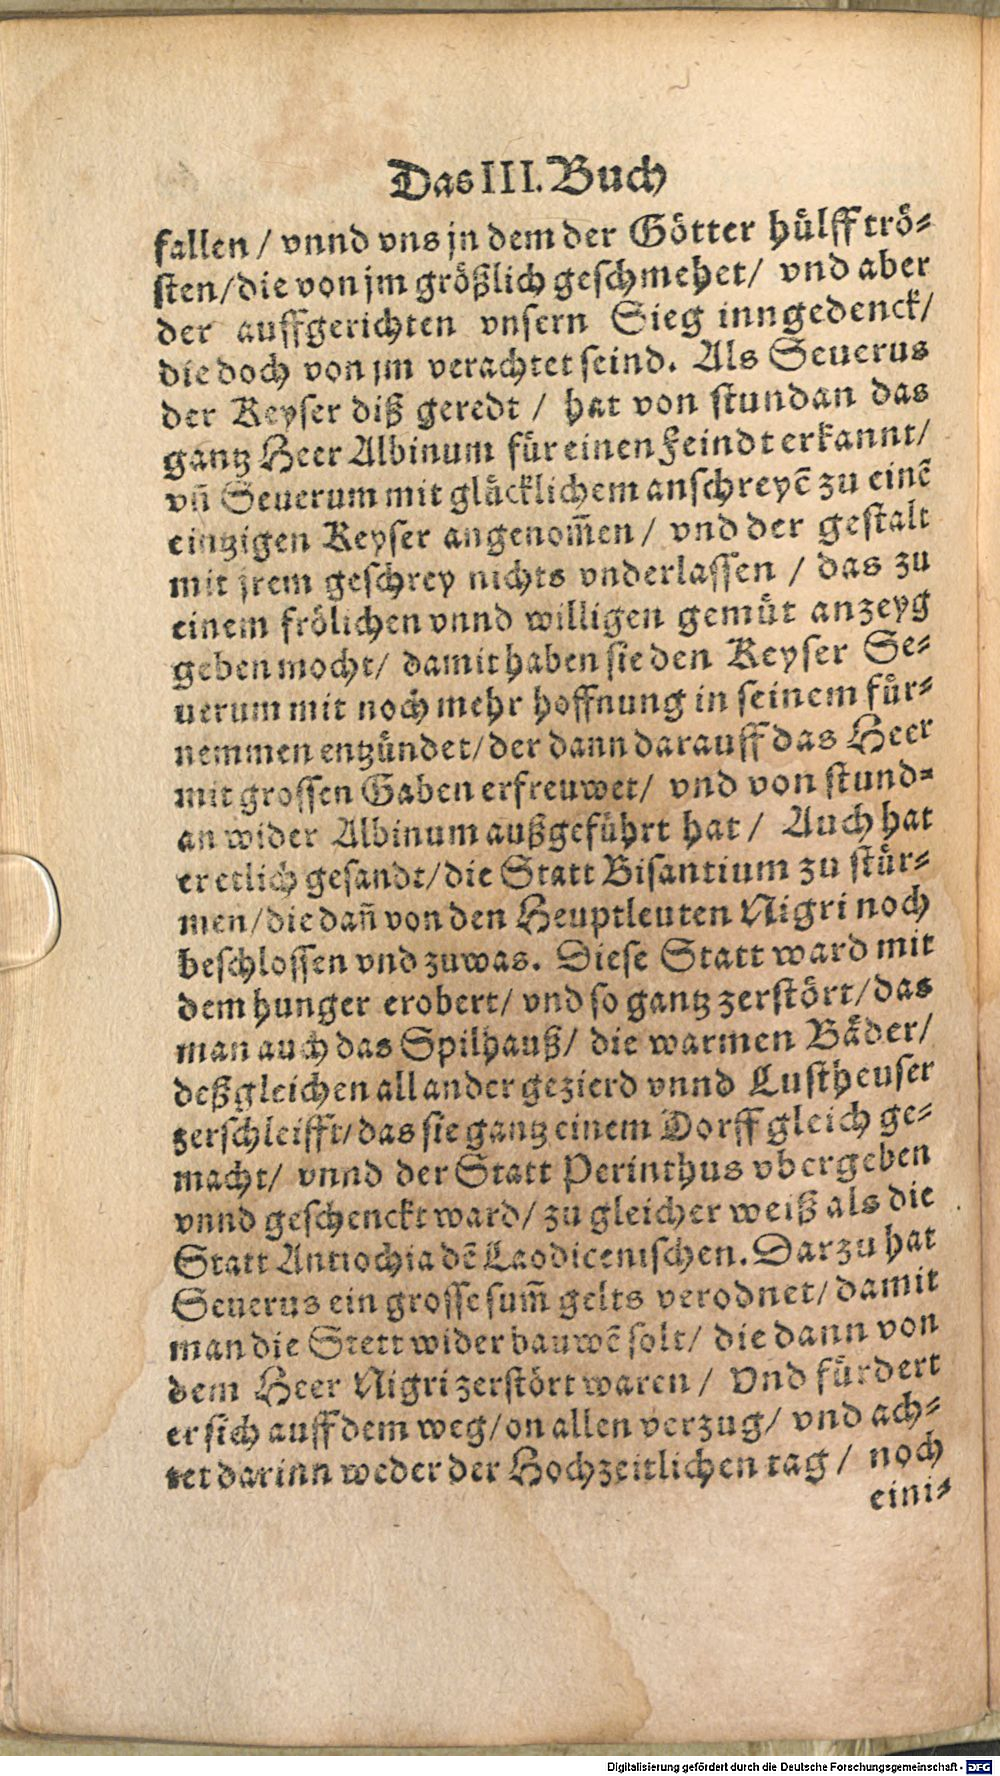 Das III. Buch
fallen / vnnd vns jn dem der Götter hülff trö⸗
sten/die von jm größlich geschmehet/ vnd aber
der auffgerichten vnsern Sieg inngedenck/
die doch von jm verachtet seind. Als Seuerus
der Keyser diß geredt / hat von stundan das
gantz Heer Albinum für einen Feindt erkannt/
vñ Seuerum mit glücklichem anschreyẽ zu einẽ
eintzigen Keyser angenom̃en / vnd der gestalt
mit jrem geschrey nichts vnderlassen / das zu
einem frölichen vnnd willigen gemüt anzeyg
geben mocht/ damit haben sie den Keyser Se⸗
uerum mit noch mehr hoffnung in seinem für⸗
nemmen entzündet/der dann darauff das Heer
mit grossen Gaben erfreuwet/ vnd von stund⸗
an wider Albinum außgeführt hat / Auch hat
er etlich gesandt/die Statt Bisantium zu stür⸗
men/die dañ von den Heuptleuten Nigri noch
beschlossen vnd zuwas. Diese Statt ward mit
dem hunger erobert/ vnd so gantz zerstört/das
man auch das Spilhauß/ die warmen Bäder/
deßgleichen all ander gezierd vnnd Lustheuser
zerschleifft/das sie gantz einem Dorff gleich ge⸗
macht/ vnnd der Statt Perinthus vbergeben
vnnd geschenckt ward/ zu gleicher weiß als die
Statt Antiochia dẽ Laodicenischen. Darzu hat
Seuerus ein grosse sum̃ gelts verodnet/ damit
man die Stett wider bauwẽ solt/ die dann von
dem Heer Nigri zerstört waren / Vnd fürdert
er sich auff dem weg/on allen verzug/ vnd ach⸗
tet darinn weder der Hochzeitlichen tag / noch
eini⸗
Digitalisierung gefördert durch die Deutsche Forschungsgemeinschaft - DFG